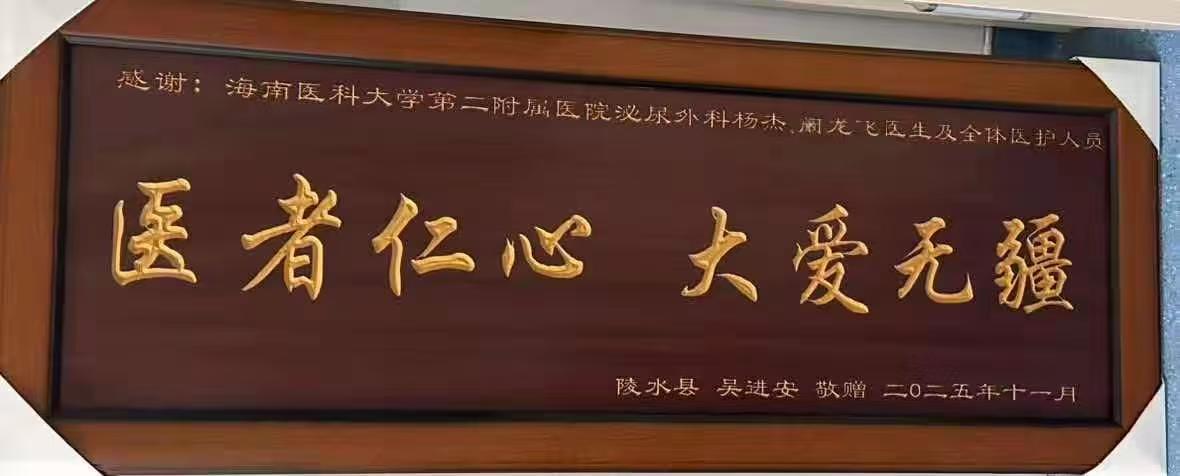 感谢：海南医科大学第二附属医院泌尿外科杨杰、阚龙飞医生及全体医护人员
医者仁心 大爱无疆
陵水县 吴进安 敬赠 二〇二五年十一月